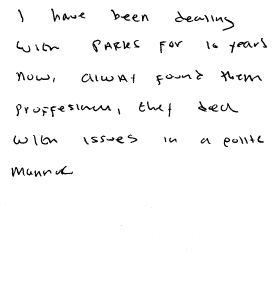 I have been dealing
with PARKS for 10 years
now, alway found them
proffesinul, they deal
with issues in a polite
mannar